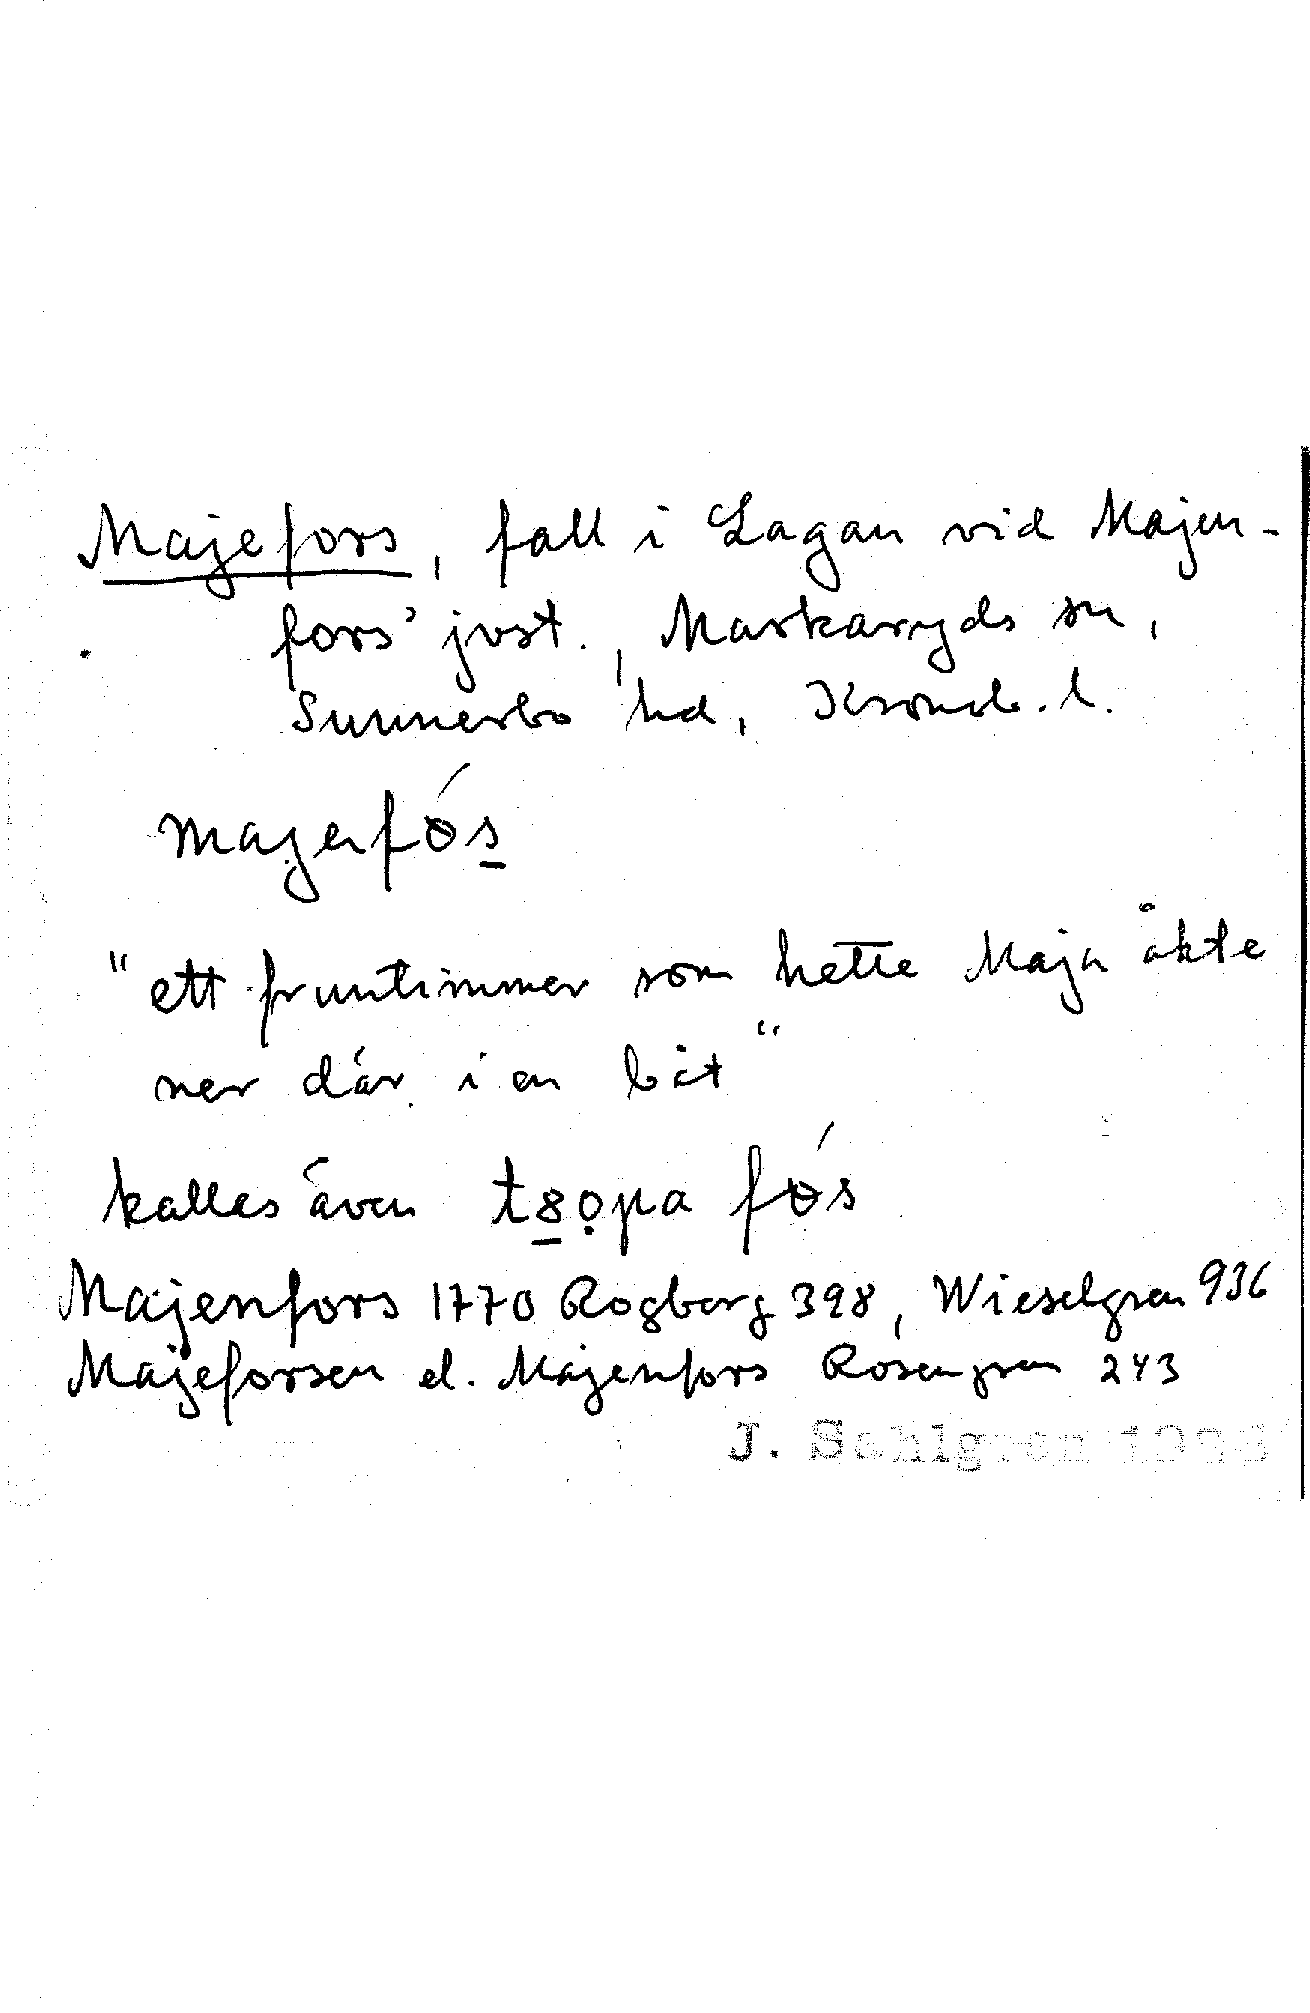 Majefors, fall i Lagan vid Majen-
fors' jvst., Markaryds sn,
Sunnerbo hd, Kronob. l.
majenfós
"ett fruntimmer som hette Maja åkte
ner där i en båt"
kallas även fós
Majenfors 1770 Rogberg 398, Wieselgren 936
Majeforsen el. Majenfors Rosengren 243
J. Sahlgren